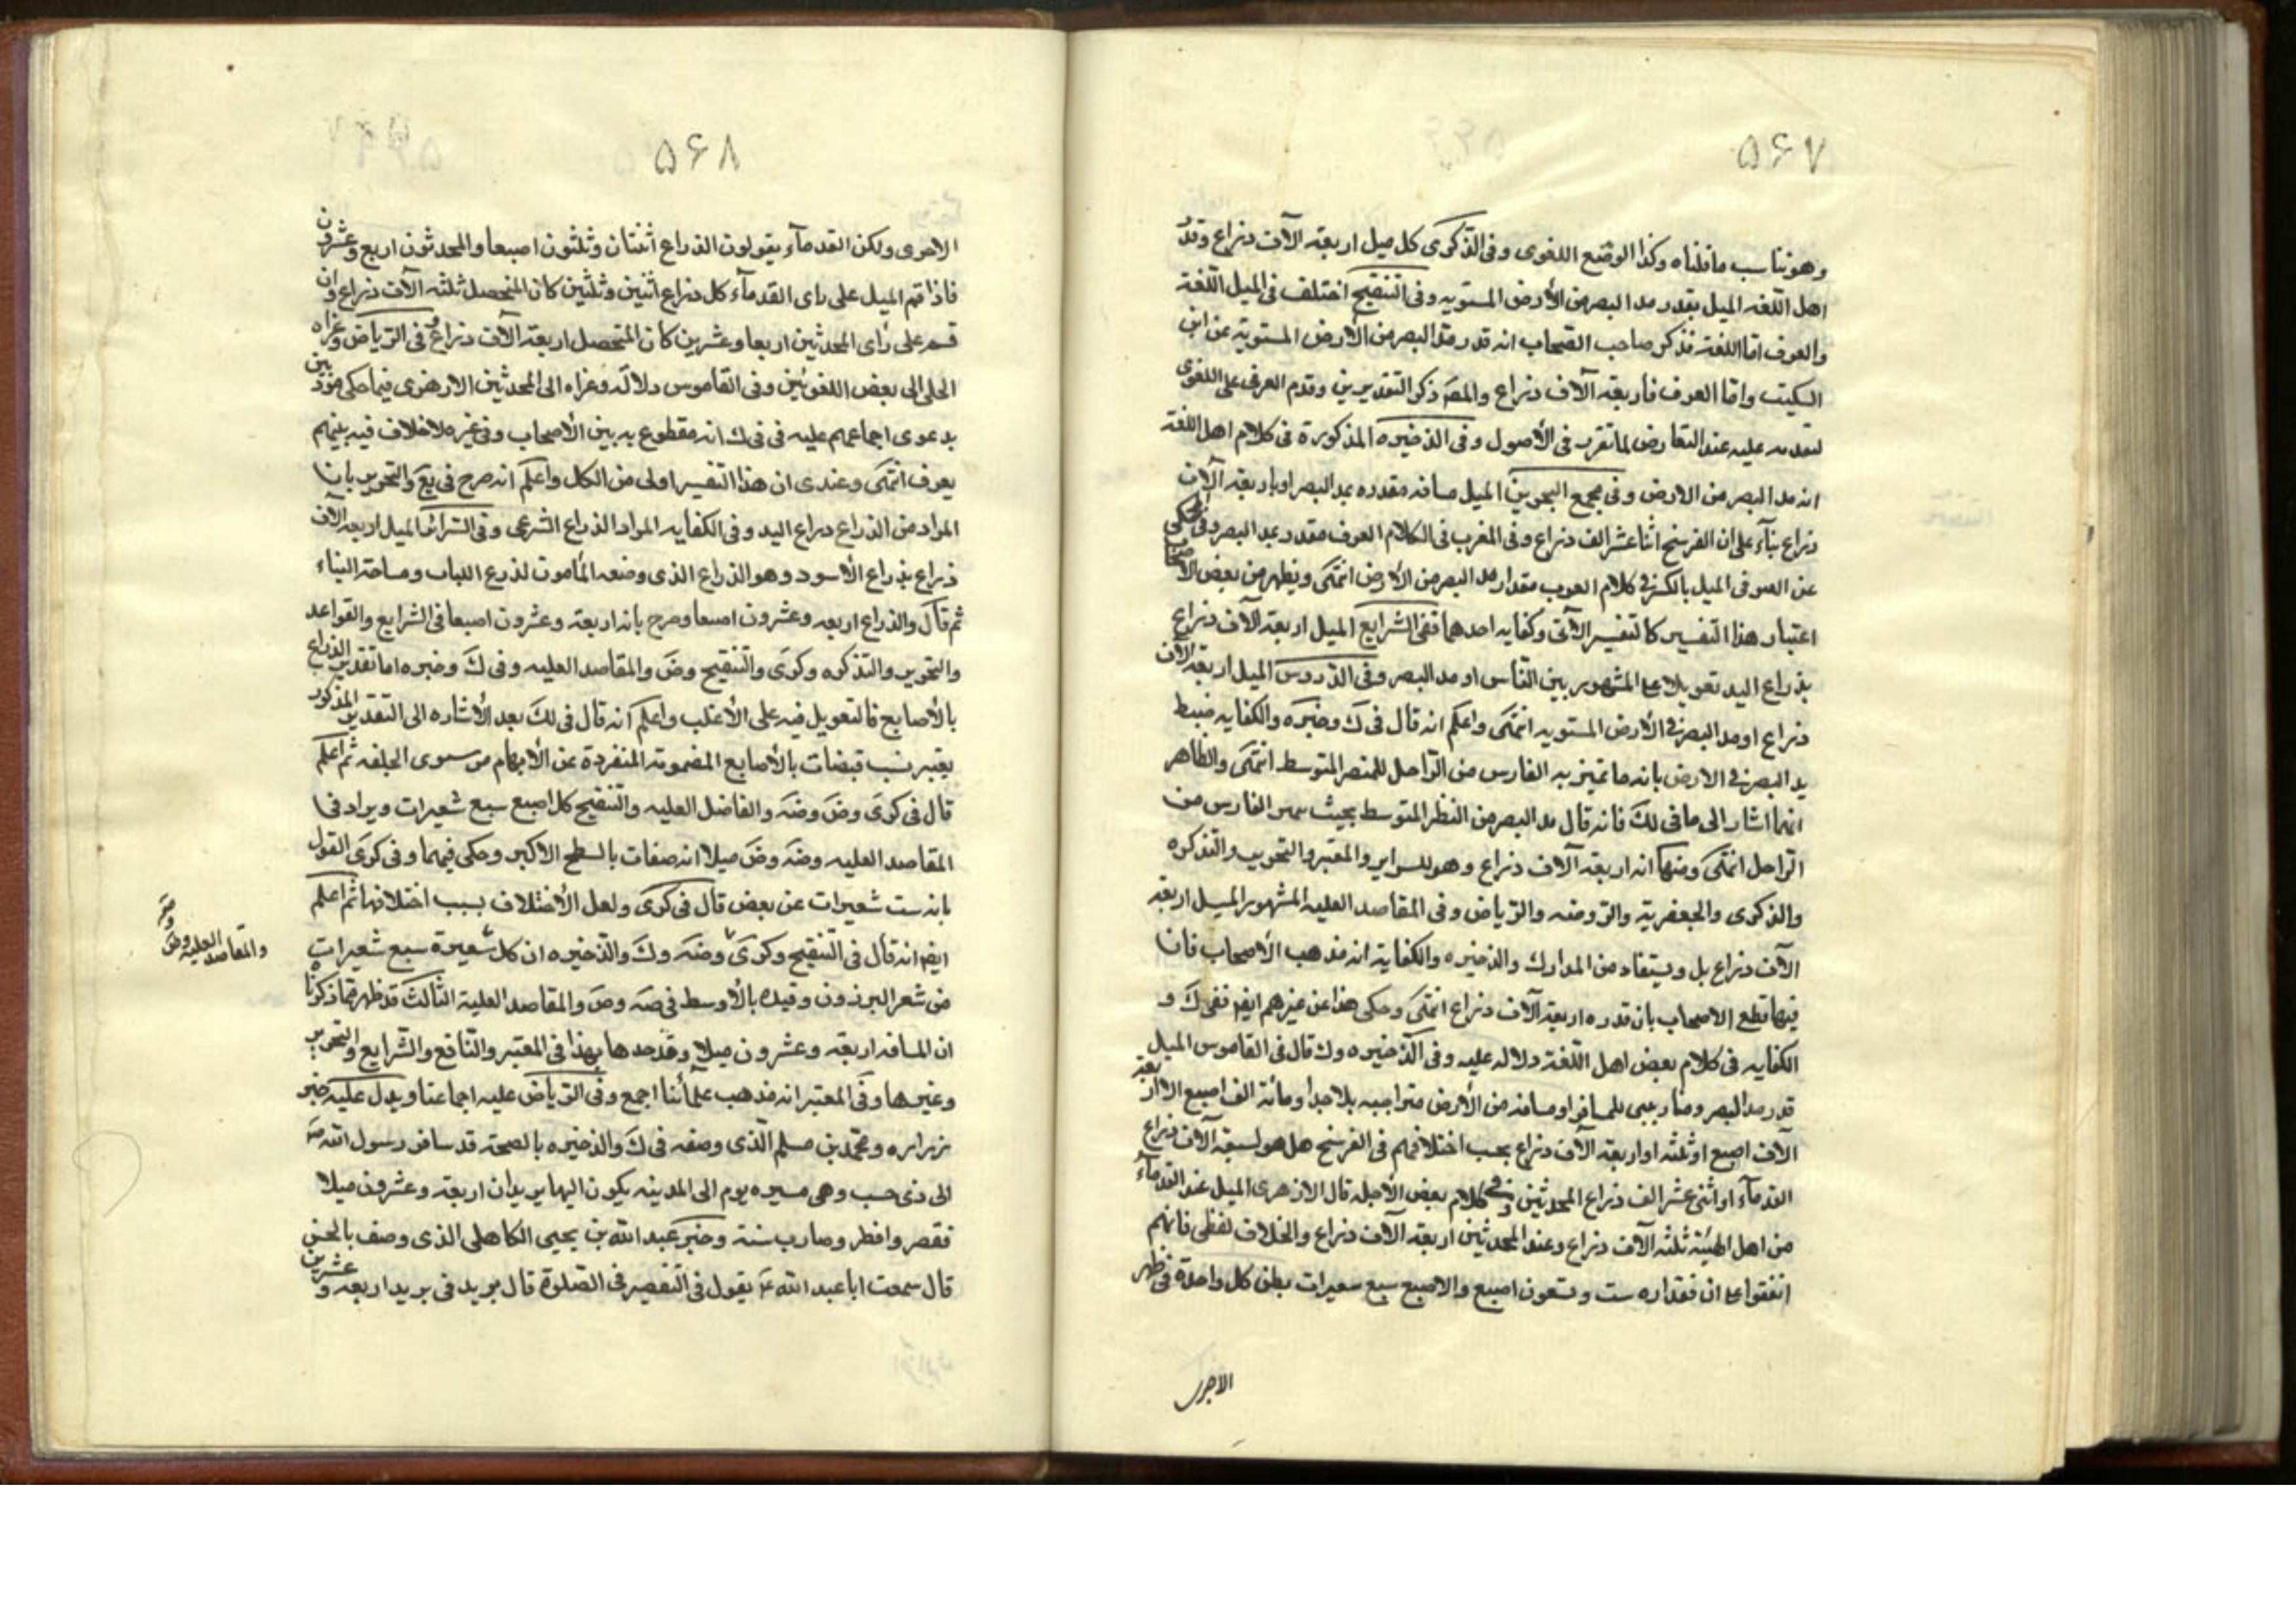 ۵۶۷
وهو يناسب ما قلناه وكذا الوضع اللغوى وفى الذكرى كل ميل اربعة الآف ذراع وقدر
اهل اللغة الميل بقدر مد البصر من الأرض المستويه وفى التنقيح اختلف فى الميل اللغة
والعرف اما اللغة فذكر صاحب الصحاب انه قدر مد البصر من الأرض المستوية عن ابن
السكيت واما العرف فاربعة آلاف ذراع والمصَ ذكر التقديرين وقدم العرفى على اللغوى
لتقدمه عليه عند التعارض لما تقرر فى الأصول وفى الذخيره المذكورة فى كلام اهل اللغة
انه مد البصر من الارض وفى مجمع البحرين الميل مسافه مقدره بمد البصر او باربعة آلآف
ذراع بنآء على ان الفرسخ اثنا عشر الف ذراع وفى المغرب فى الكلام العرف مقدر بمد البصر وفى
عن الميل بالكسر فى كلام العرب مقدار مد البصر من الأرض انتهى ويظهر من بعض
اعتبار هذا التفسير كالتفسير الآتى وكفايه احدهما ففى الشرايع الميل اربعة آلاف ذراع
بذراع اليد تعويلا على المشهور بين الناس او مد البصر وفى الدروس الميل اربعة الآف
ذراع او مد البصر فى الأرض المستويه انتهى واعلم انه قال فى كَ وخيرَه والكفايه ضبط
مد البصر فى الارض بانه ما تميز به الفارس من الراجل للمبصر المتوسط انتهى والظاهر
انهما اشار الى ما فى لكَ فانه قال مد البصر من النظر المتوسط بحيث الفارس من
الراجل انتهى ومنها انه اربعة آلاف ذراع وهو للسراير والمعتبر والتحرير والتذكره
والذكرى والجعفرية والروضه والرياض وفى المقاصد العليه المشهور الميل اربعة
الآف ذراع بل ويستفاد من المدارك والذخيره والكفاية انه مذهب الأصحاب فان
فيها قطع الاصحاب بان قدره اربعة آلاف ذراع انتهى وحكى هذا عن غيرهم ايضا ففى كَ و
الكفايه فى كلام بعض اهل اللغة دلاله عليه وفى الذخيره وك قال فى القاموس الميل
قدر مد البصر ومنار يبنى للمسافر او مسافه من الأرض متراخيه بلا حد او مائة الف اصبع الا اربعة
الآف اصبع او ثلثه او اربعة الآف ذراع بحسب اختلافهم فى الفرسخ هل هو تسعة آلاف ذراع
القدمآء او اثنى عشر الف ذراع المحدثين وفى كلام بعض الأجله قال الازهرى الميل عند القدمآء
من اهل الهيئة ثلثة الآف ذراع وعند المحدثين اربعة الآف ذراع والخلاف لفظى فانهم
اتفقوا على ان مقداره ست وتسعون اصبع والاصبع سبع شعيرات بطن كل واحدة فى ظهر
الاخرى
۵۶۸
الاخرى ولكن القدمآء يقولون الذراع اثنتان وثلثون اصبعا والمحدثون اربع وعشرون
فاذا قسم الميل على راى القدمآء كل ذراع اثنين وثلثين كان المتحصل ثلثة الآف ذراع وان
قسم على رأى المحدثين اربعا وعشرين كان المتحصل اربعة الآف ذراع وفى الرياض وعزاه
الحلى الى بعض اللغوئين وفى القاموس دلالة وعزاه الى المحدثين الازهرى فيما حكى مؤذنين
بدعوى اجماعهم عليه فى ك انه مقطوع به بين الأصحاب وفى غيره لا خلاف فيه بينهم
يعرف انتهى وعندى ان هذا التفسير اولى من الكل واعلم انه صرح فى يَع والتحرير بان
المراد من الذراع ذراع اليد وفى الكفايه المراد الذراع الشرعى وفى السرائر الميل اربعة الآف
ذراع بذراع الأسود وهو الذراع الذى وضعه المأمون لذرع الثياب ومساحة البناء
ثم قال والذراع اربعه وعشرون اصبعا وصرح بانه اربعة وعشرون اصبعا فى الشرايع والقواعد
والتحرير والتذكره وكرى والتنقيح وضَ والمقاصد العليه وفى كَ وخيره اما تقدير الذراع
بالأصابع فالتعويل فيه على الأغلب واعلم انه قال فى لكَ بعد الأشاره الى التقدير المذكور
يعتبر بست قبضات بالأصابع المضمومة المنفردة عن الأبهام من مستوى الخلقه ثم اعلم
قال فى كرى وضَ وضَه والفاضل العليه والتنقيح كل اصبع سبع شعيرات ويراد فى
المقاصد العليه وضَه وضَ ميلا انه صفات بالسطح الاكبر وحكى فيهما وفى كرى القول
بانه ست شعيرات عن بعض قال فى كرى ولعل الأختلاف بسبب اختلافها ثم اعلم
ايضا انه قال فى التنقيح وكرى وضَه وكَ والذخيره ان كل شعيرة سبع شعيرات
من شعر البرذون وقيده بالأوسط فى ضَه وضَ والمقاصد العلية الثالث قد ظهر مما ذكرنا
ان المسافه اربعة وعشرون ميلا وقد حدها بهذا فى المعتبر والنافع والشرايع والتحرير
وغيرها وفى المعتبر انه مذهب علمائنا اجمع وفى الرياض عليه اجماعنا ويدل عليه خبر
زراره ومحمد بن مسلم الّذى وصفه فى كَ والذخيره بالصحة قد سافر رسول الله صَ
الى ذى خشب وهى مسيره يوم الى المدينه يكون اليها بريدان اربعة وعشرون ميلا
فقصر وافطر وصارت سنة وخبر عبد الله بن يحيى الكاهلى الذى وصف بالحسن
قال سمعت ابا عبد الله عَ يقول فى التقصير فى الصّلوة قال بريد فى بريد اربعه وعشرين
والمقاصد العليه وضَ